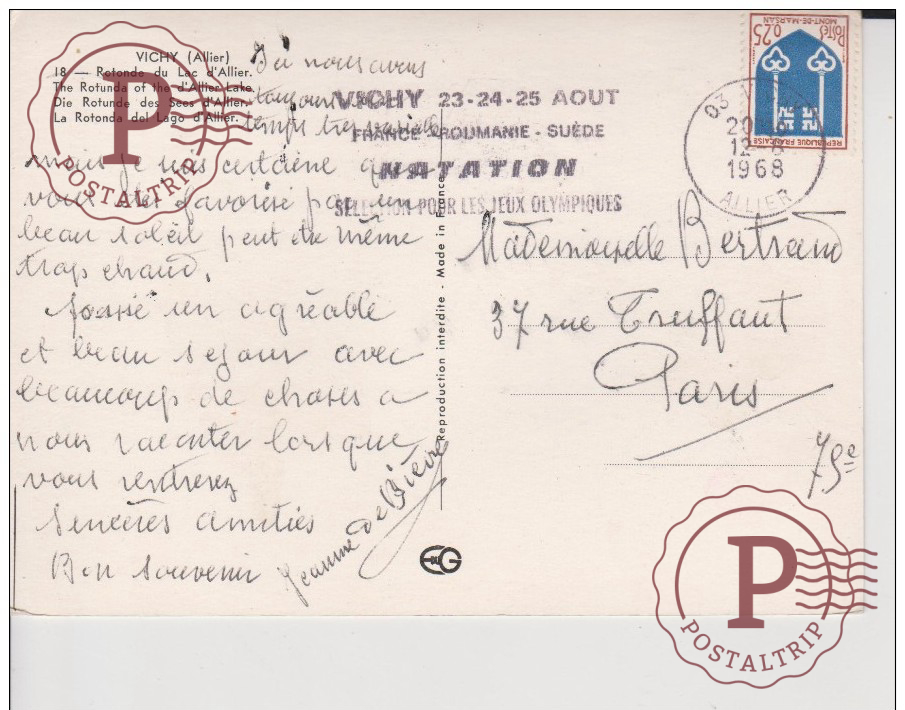 VICHY (Allier)
18 — Rotonde du Lac d'Allier.
The Rotunda of the d'Allier Lake
Die Rotunde des Sees d'Allier.
La Rotonda del Lago d'Allier.
Ici nous avons
toujours
temps très variable
mais je suis certaine que
vous favorisé par un
beau soleil peut être même
trop chaud.
Passé un agréable
et beau séjour avec
beaucoup de choses a
nous raconter lorsque
vous rentrerez
Sincères amitiés
Bon souvenir
Jeanne de Bièvre
VICHY 23-24-25 AOUT
FRANCE - ROUMANIE - SUÈDE
NATATION
SÉLECTION POUR LES JEUX OLYMPIQUES
03 VICHY
20
12-8
1968
ALLIER
POSTES 0,25
MONT-DE-MARSAN
REPUBLIQUE FRANÇAISE
Reproduction interdite - Made in France
Mademoiselle Bertrand
37 rue Truffaut
Paris
EG
P
POSTALTRIP
P
POSTALTRIP